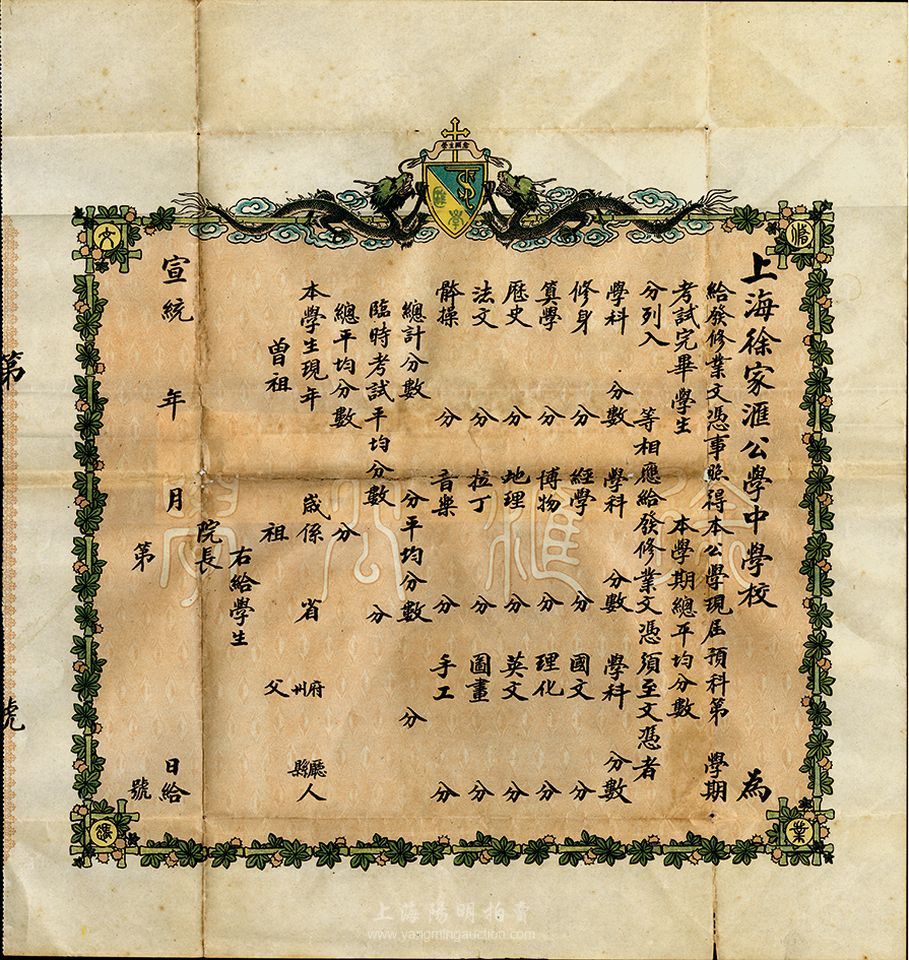 上海徐家滙公學中學校 為
給發修業文憑事照得本公學現屆預科第 學期
考試完畢學生 本學期總平均分數
分列入 等相應給發修業文憑須至文憑者
學科 分數 學科 分數 學科 分數
修身 分 經學 分 國文 分
算學 分 博物 分 理化 分
歷史 分 地理 分 英文 分
法文 分 拉丁 分 圖畫 分
體操 分 音樂 分 手工 分
總計分數 分平均分數 分
臨時考試平均分數 分
總平均分數 分
本學生現年 歲係 省 府州 廳縣人
曾祖 祖 父
右給學生
院長
宣統 年 月 日給
第 號
第 號
修
業
文
憑
徐滙公學
上海陽明拍賣
www.yangmingauction.com